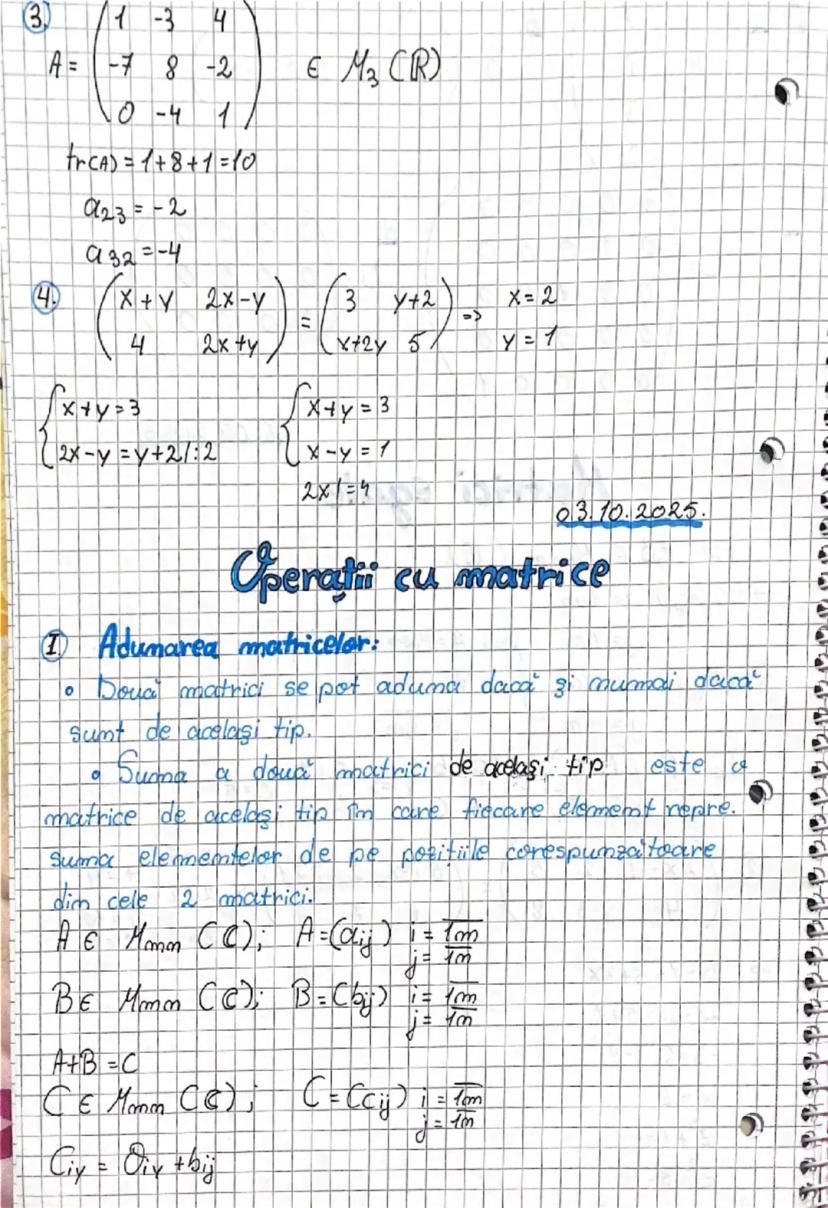 3.
A = ( 1 -3 4
-7 8 -2 ∈ M₃ (R)
0 -4 1 )
tr(A) = 1+8+1 = 10
a₂₃ = -2
a₃₂ = -4
4. ( x+y 2x-y ) = ( 3 y+2 ) => x = 2
( 4 2x+y ) ( x+2y 5 ) y = 1
{ x+y=3 { x+y = 3
{ 2x-y = y+2 /:2 { x-y = 1
2x / = 4
03.10.2025.
Operații cu matrice
I. Adunarea matricelor:
• Două matrici se pot aduna dacă și numai dacă
sunt de același tip.
• Suma a două matrici de același tip este o
matrice de același tip în care fiecare element repre.
suma elementelor de pe pozițiile corespunzătoare
din cele 2 matrici.
A ∈ Mmn (C); A = (aij) i = 1m
j = 1n
B ∈ Mmn (C); B = (bij) i = 1m
j = 1n
A+B = C
C ∈ Mmn (C); C = (cij) i = 1m
j = 1n
Ciy = aiy + bij